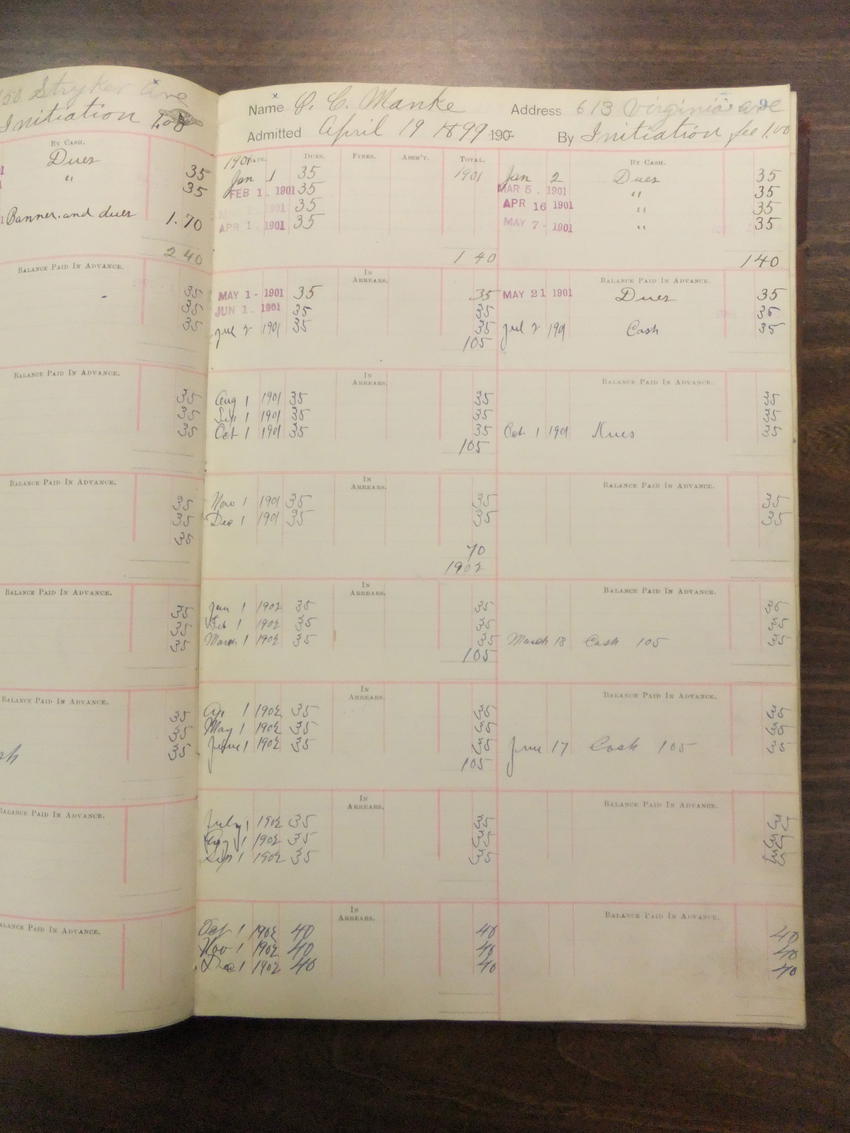 Stryker Ave
Initiation
By Cash.
Dues 35
" 35
Banner, and dues 1.70
2 40
Balance Paid In Advance.
35
35
35
Balance Paid In Advance.
35
35
35
Balance Paid In Advance.
35
35
35
Balance Paid In Advance.
35
35
35
Balance Paid In Advance.
35
35
35
Balance Paid In Advance.
Balance Paid In Advance.
Name O. C. Manke Address 613 Virginia ave
Admitted April 19 1899 190- By Initiation fee 1.00
1901 Date. Dues. Fines. Asm't. Total. By Cash.
Jan 1 35 1901 Jan 2 Dues 35
FEB 1 . 1901 35 MAR 5 . 1901 " 35
35 APR 16 1901 " 35
APR 1 . 1901 35 MAY 7 - 1901 " 35
1 40 140
In Arrears. Balance Paid In Advance.
MAY 1 - 1901 35 35 MAY 21 1901 Dues 35
JUN 1 . 1901 35 35 35
Jul 2 1901 35 35 Jul 2 1901 Cash 35
105
In Arrears. Balance Paid In Advance.
Aug 1 1901 35 35 35
Sep 1 1901 35 35 35
Oct 1 1901 35 35 Oct 1 1901 Dues 35
105
In Arrears. Balance Paid In Advance.
Nov 1 1901 35 35 35
Dec 1 1901 35 35 35
70
1902
In Arrears. Balance Paid In Advance.
Jan 1 1902 35 35 35
Feb 1 1902 35 35 35
March 1 1902 35 35 March 18 Cash 105 35
105
In Arrears. Balance Paid In Advance.
Ap 1 1902 35 35 35
May 1 1902 35 35 35
June 1 1902 35 35 June 17 Cash 105 35
105
In Arrears. Balance Paid In Advance.
July 1 1902 35 35 35
Aug 1 1902 35 35 35
Sep 1 1902 35 35 35
In Arrears. Balance Paid In Advance.
Oct 1 1902 40 40 40
Nov 1 1902 40 40 40
Dec 1 1902 40 40 40